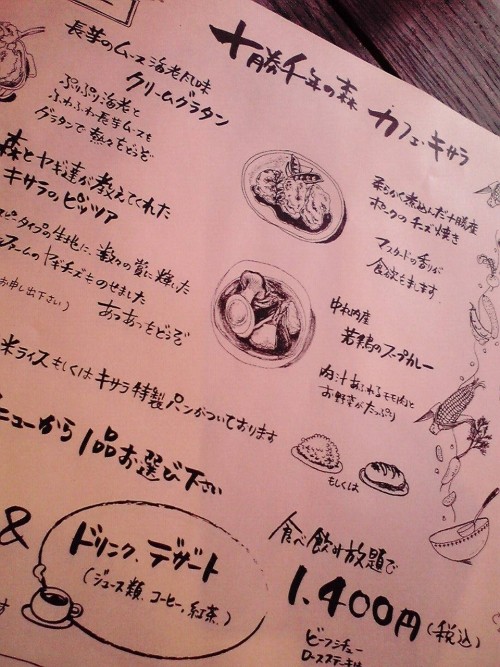 十勝千年の森 カフェ・キサラ
長芋のムース 海老だし味
クリームグラタン
ぷりぷり海老と
ふわふわ長芋ムースを
グラタンで 熱々をどうぞ
柔らかく煮込んだ十勝産
ポークのチーズ焼き
マスタードの香りが
食欲をます
森とヤギ達が教えてくれた
キサラのピッツァ
タイプの生地に、
ファームのヤギチーズものせました
お申し出下さい)
あつあつをどうぞ
中札内産
若鶏のスープカレー
肉汁あふれるモモ肉と
お野菜がたっぷり
米ライス もしくは キサラ特製 パンがついております
もしくは
ニューから 1品お選び下さい
&
ドリンク、デザート
(ジュース類、コーヒー、紅茶、)
食べ飲み放題で
1,400円(税込)
ビーフシチュー
ロースステーキは